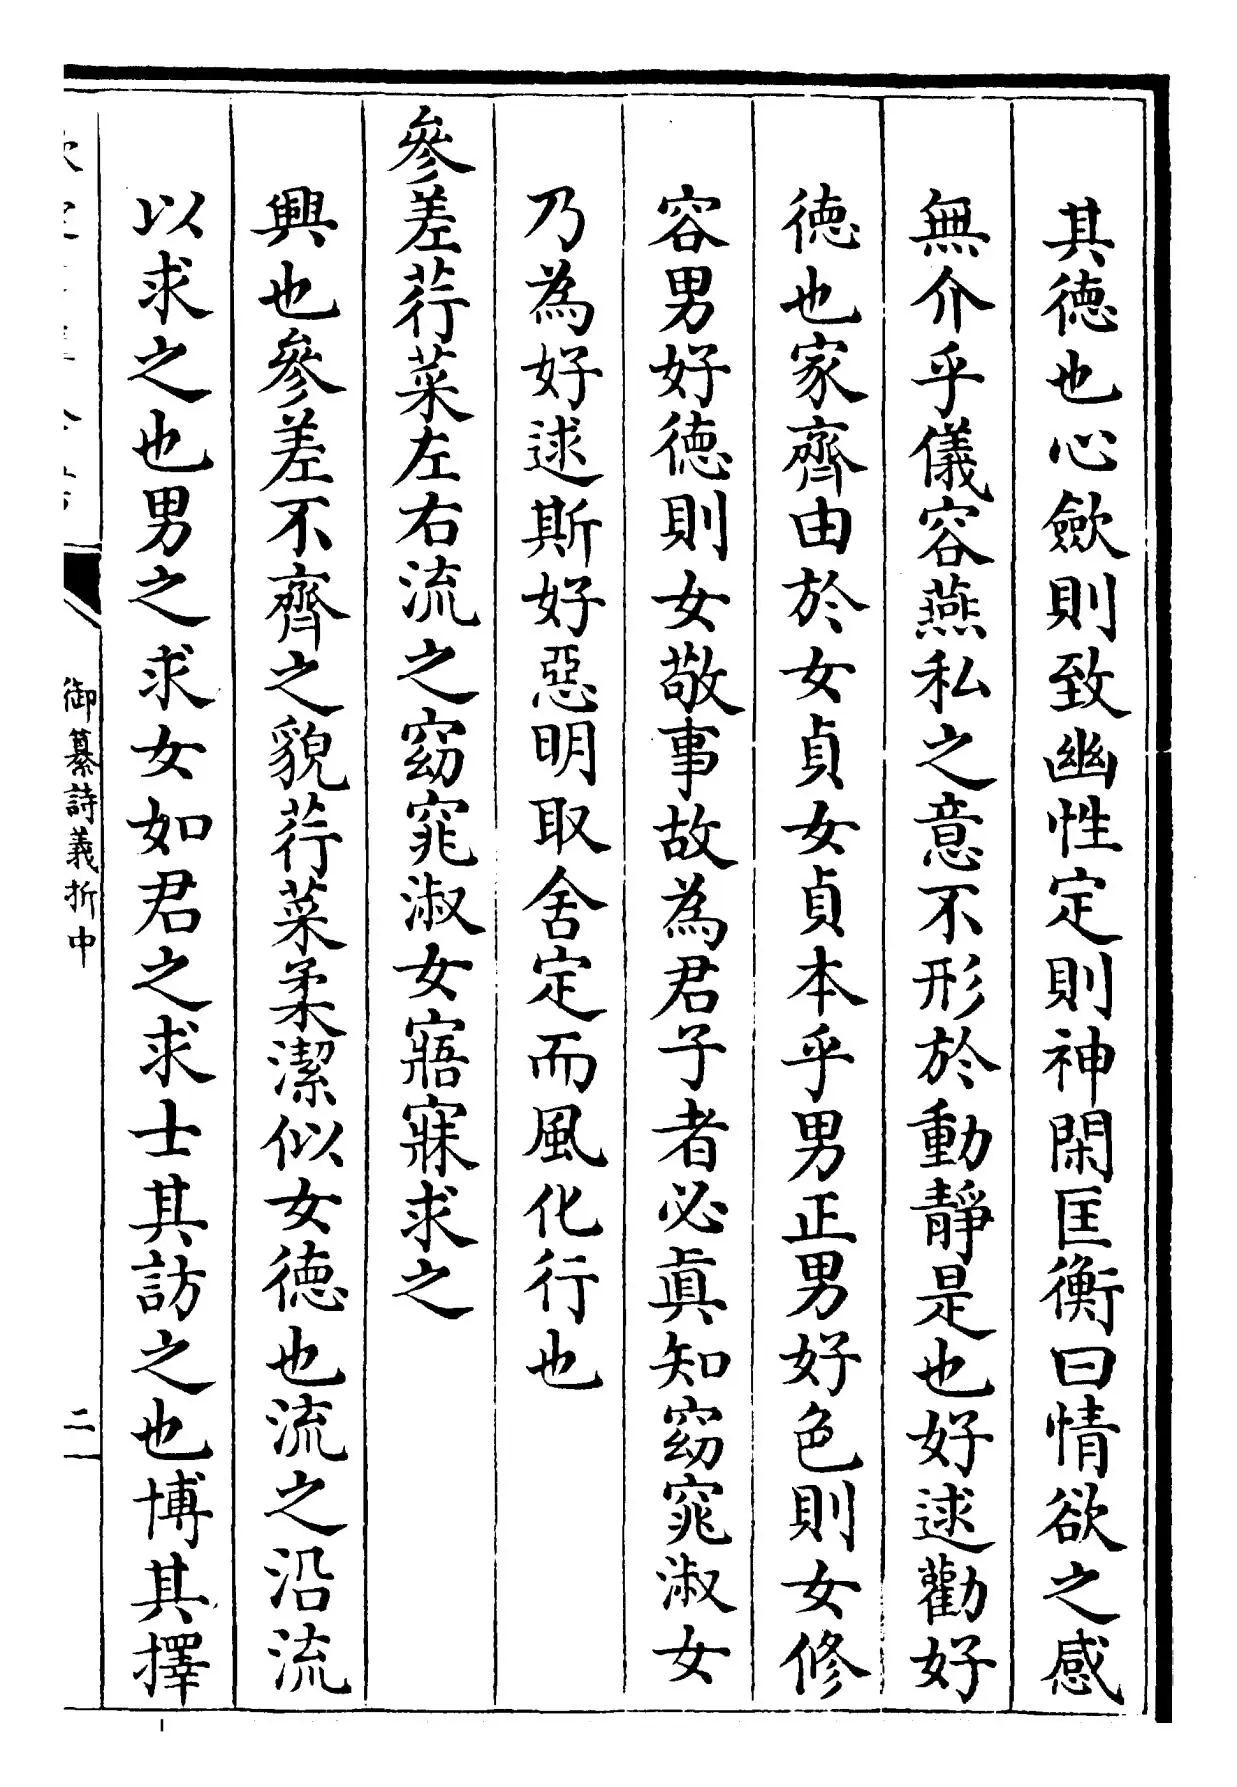 其德也心歛則致幽性定則神閑匡衡曰情欲之感
無介乎儀容燕私之意不形於動靜是也好逑勸好
德也家齊由於女貞女貞本乎男正男好色則女修
容男好德則女敬事故為君子者必真知窈窕淑女
乃為好逑斯好惡明取舍定而風化行也
參差荇菜左右流之窈窕淑女寤寐求之
興也參差不齊之貌荇菜柔潔似女德也流之沿流
以求之也男之求女如君之求士其訪之也博其擇
御纂詩義折中
二